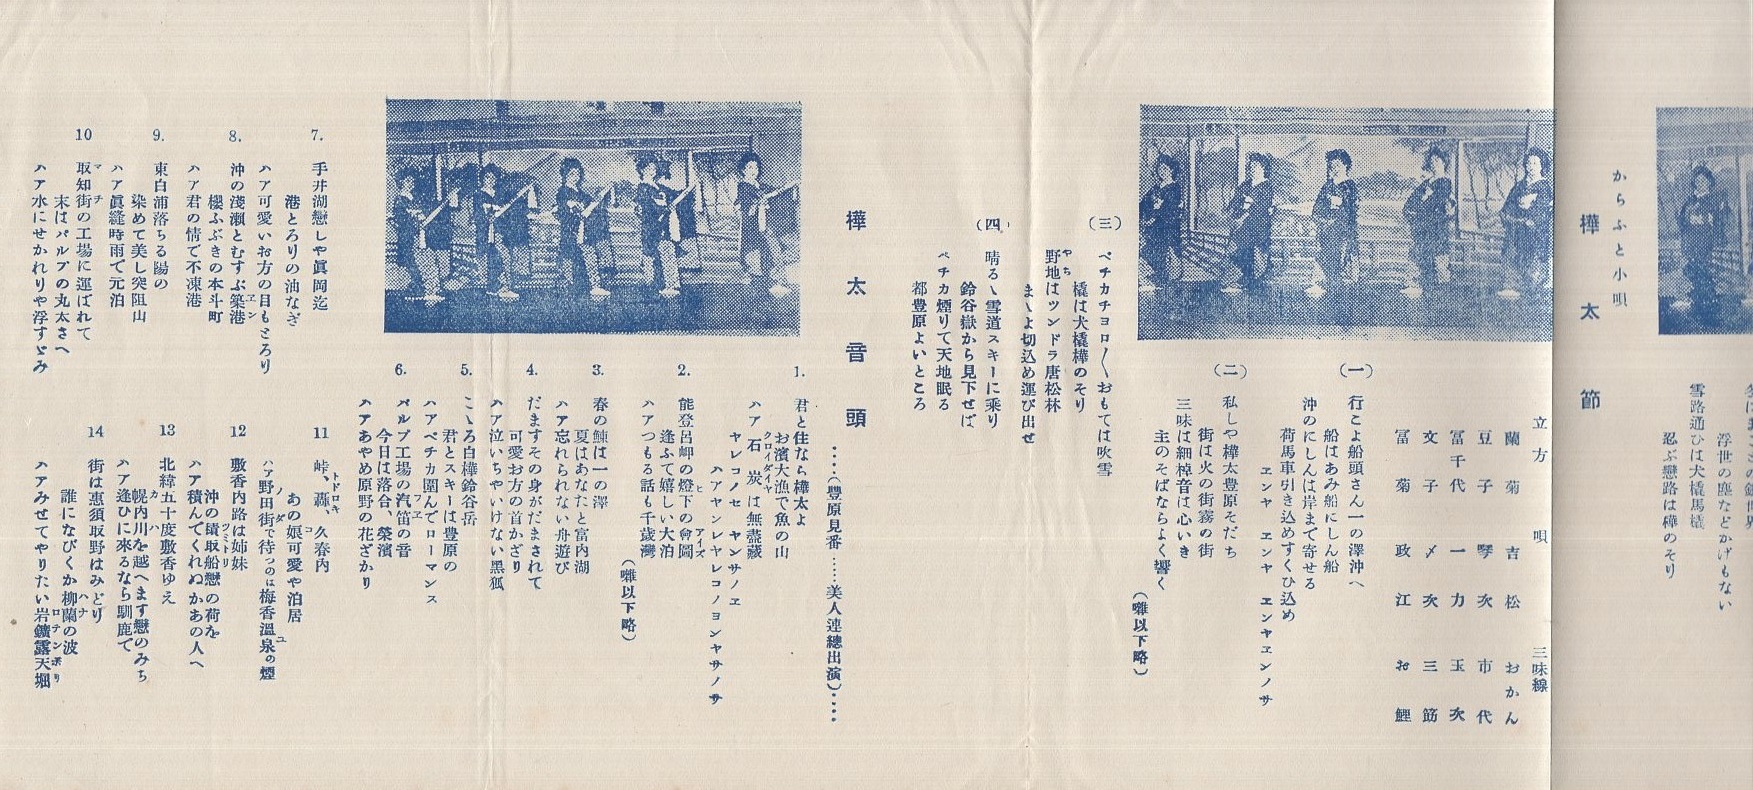 からふと小唄
浮世の塵などかげもない
雪路通ひは犬橇馬橇
忍ぶ戀路は樺のそり
樺太節
立方 唄 三味線
蘭菊 吉松 おかん
豆子 琴次 市代
冨千代 一力 玉次
文子 〆次 三筋
冨菊 政江 お鯉
(一)
行こよ船頭さん一の澤沖へ
船はあみ船にしん船
沖のにしんは岸まで寄せる
荷馬車引き込めすくひ込め
ヱンヤ ヱンヤ ヱンヤヱンノサ
(二)
私しや樺太豊原そだち
街は火の街霧の街
三味は細棹音は心いき
主のそばならよく響く
(囃以下略)
(三)
ペチカチヨロ〱おもては吹雪
橇は犬橇樺のそり
野地はツンドラ唐松林
やち
まゝよ切込め運び出せ
(四)
晴るゝ雪道スキーに乘り
鈴谷嶽から見下せば
ペチカ煙りて天地眠る
都豊原よいところ
樺太音頭
‥‥(豐原見番‥‥美人連總出演)‥‥
1.
君と住なら樺太よ
お濱大漁で魚の山
ハア石炭は無盡藏
クロイダイヤ
ヤレコノセ ヤンサノヱ
ハアヤンレヤレコノヨンヤサノサ
2.
能登呂岬の燈下の會圖
ヒ アイズ
逢ふて嬉しい大泊
ハアつもる話も千歳灣
(囃以下略)
3.
春の鰊は一の澤
夏はあなたと富内湖
ハア忘れられない舟遊び
4.
だますその身がだまされて
可愛お方の首かざり
ハア泣いちやいけない黑狐
5.
こゝろ白樺鈴谷岳
君とスキーは豊原の
ハアペチカ圍んでローマンス
6.
パルプ工場の汽笛の音
フヱ
今日は落合、榮濱
ハアあやめ原野の花ざかり
7.
手井湖戀しや眞岡迄
港とろりの油なぎ
ハア可愛いお方の目もとろり
8.
沖の淺瀬とむすぶ築港
ヱン
櫻ふぶきの本斗町
ハア君の情で不凍港
9.
東白浦落ちる陽の
染めて美し突阻山
ハア眞縫時雨で元泊
10
取知街の工場に運ばれて
マチ
末はパルプの丸太さへ
ハア水にせかれりや浮すゞみ
11
峠、轟、久春内
トドロキ
あの娘可愛や泊居
コ
ハア野田街で待つのは梅香溫泉の煙
ノダ ユ
12
敷香内路は姉妹
沖の積取船戀の荷を
ツミトリ
ハア積んでくれぬかあの人へ
13
北緯五十度敷香ゆえ
幌内川を越へます戀のみち
カハ
ハア逢ひに來るなら馴鹿で
14
街は惠須取野はみどり
誰になびくか柳蘭の波
ハナ
ハアみせてやりたい岩鑛露天堀
ロテンホリ